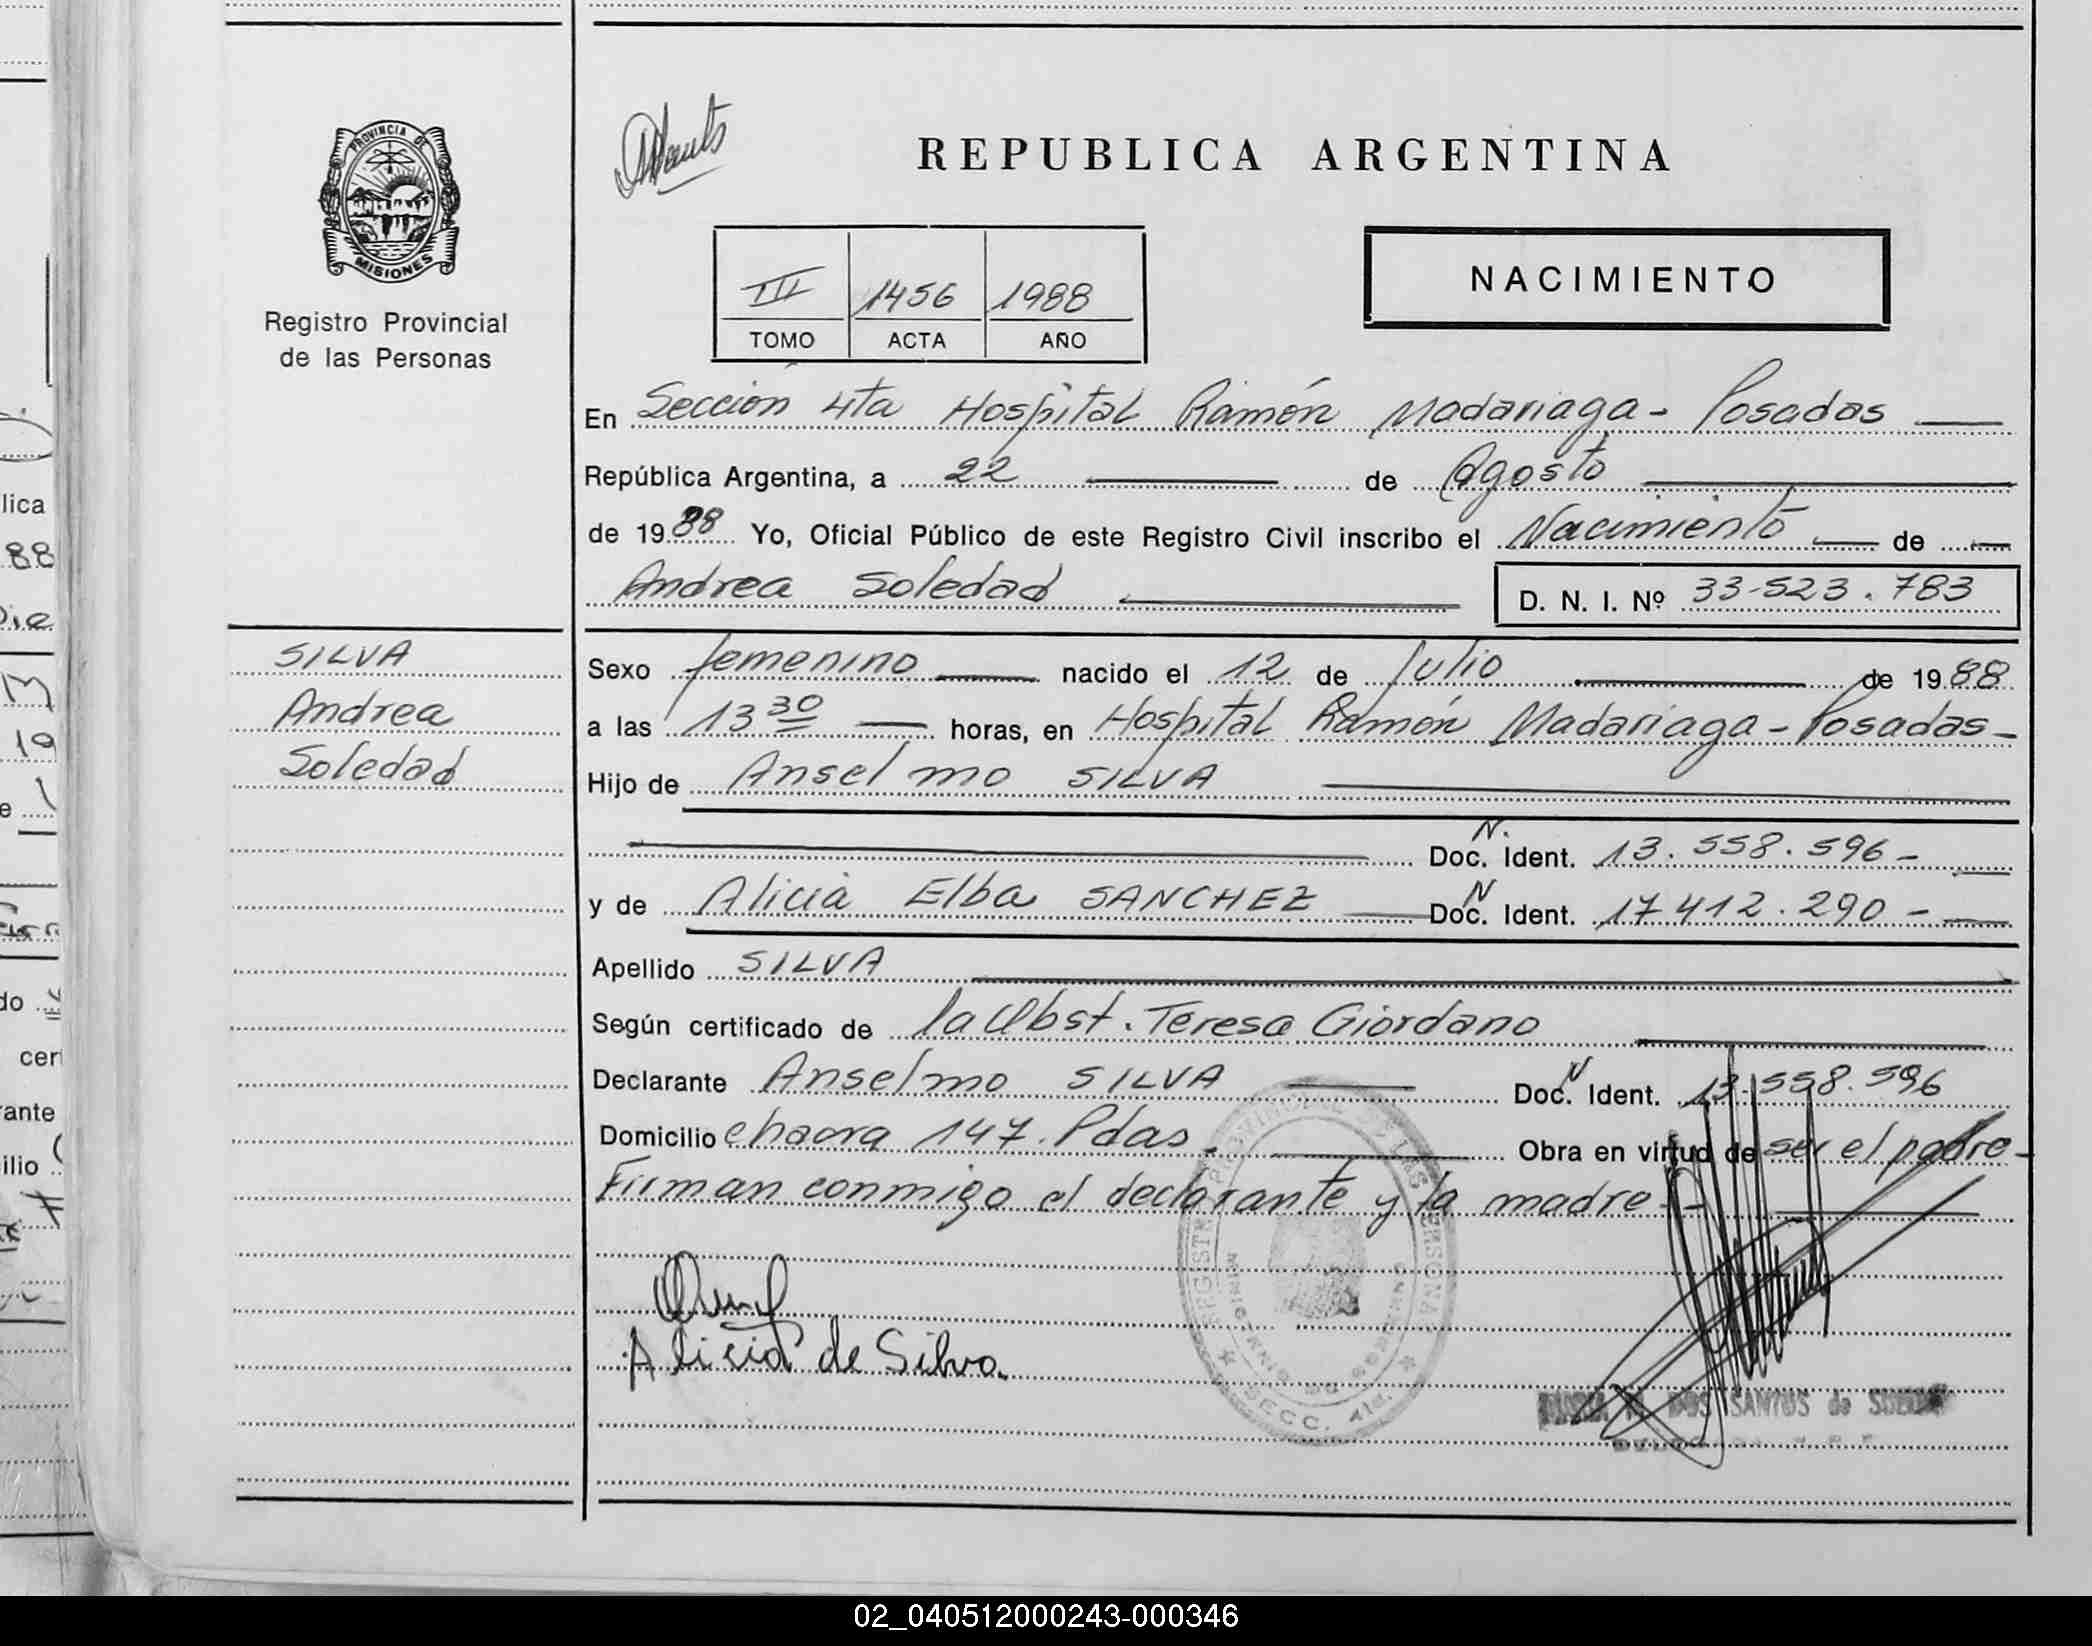 PROVINCIA DE
MISIONES
Registro Provincial
de las Personas
SILVA
Andrea
Soledad
REPUBLICA ARGENTINA
III 1456 1988
TOMO ACTA AÑO
NACIMIENTO
En Sección 4ta Hospital Ramón Madariaga - Posadas
República Argentina, a 22 de Agosto
de 1988 Yo, Oficial Público de este Registro Civil inscribo el Nacimiento de
Andrea Soledad D. N. I. Nº 33-523.783
Sexo femenino nacido el 12 de Julio de 1988
a las 13 30 horas, en Hospital Ramón Madariaga - Posadas -
Hijo de Anselmo SILVA
Doc. N. Ident. 13.558.596 -
y de Alicia Elba SANCHEZ Doc. N Ident. 17412.290 -
Apellido SILVA
Según certificado de la Obst. Teresa Giordano
Declarante Anselmo SILVA Doc. N Ident. 13.558.596
Domicilio chacra 147. Pdas. Obra en virtud de ser el padre -
Firman conmigo el declarante y la madre -
Alicia de Silva.
DOS SANTOS de
02_040512000243-000346